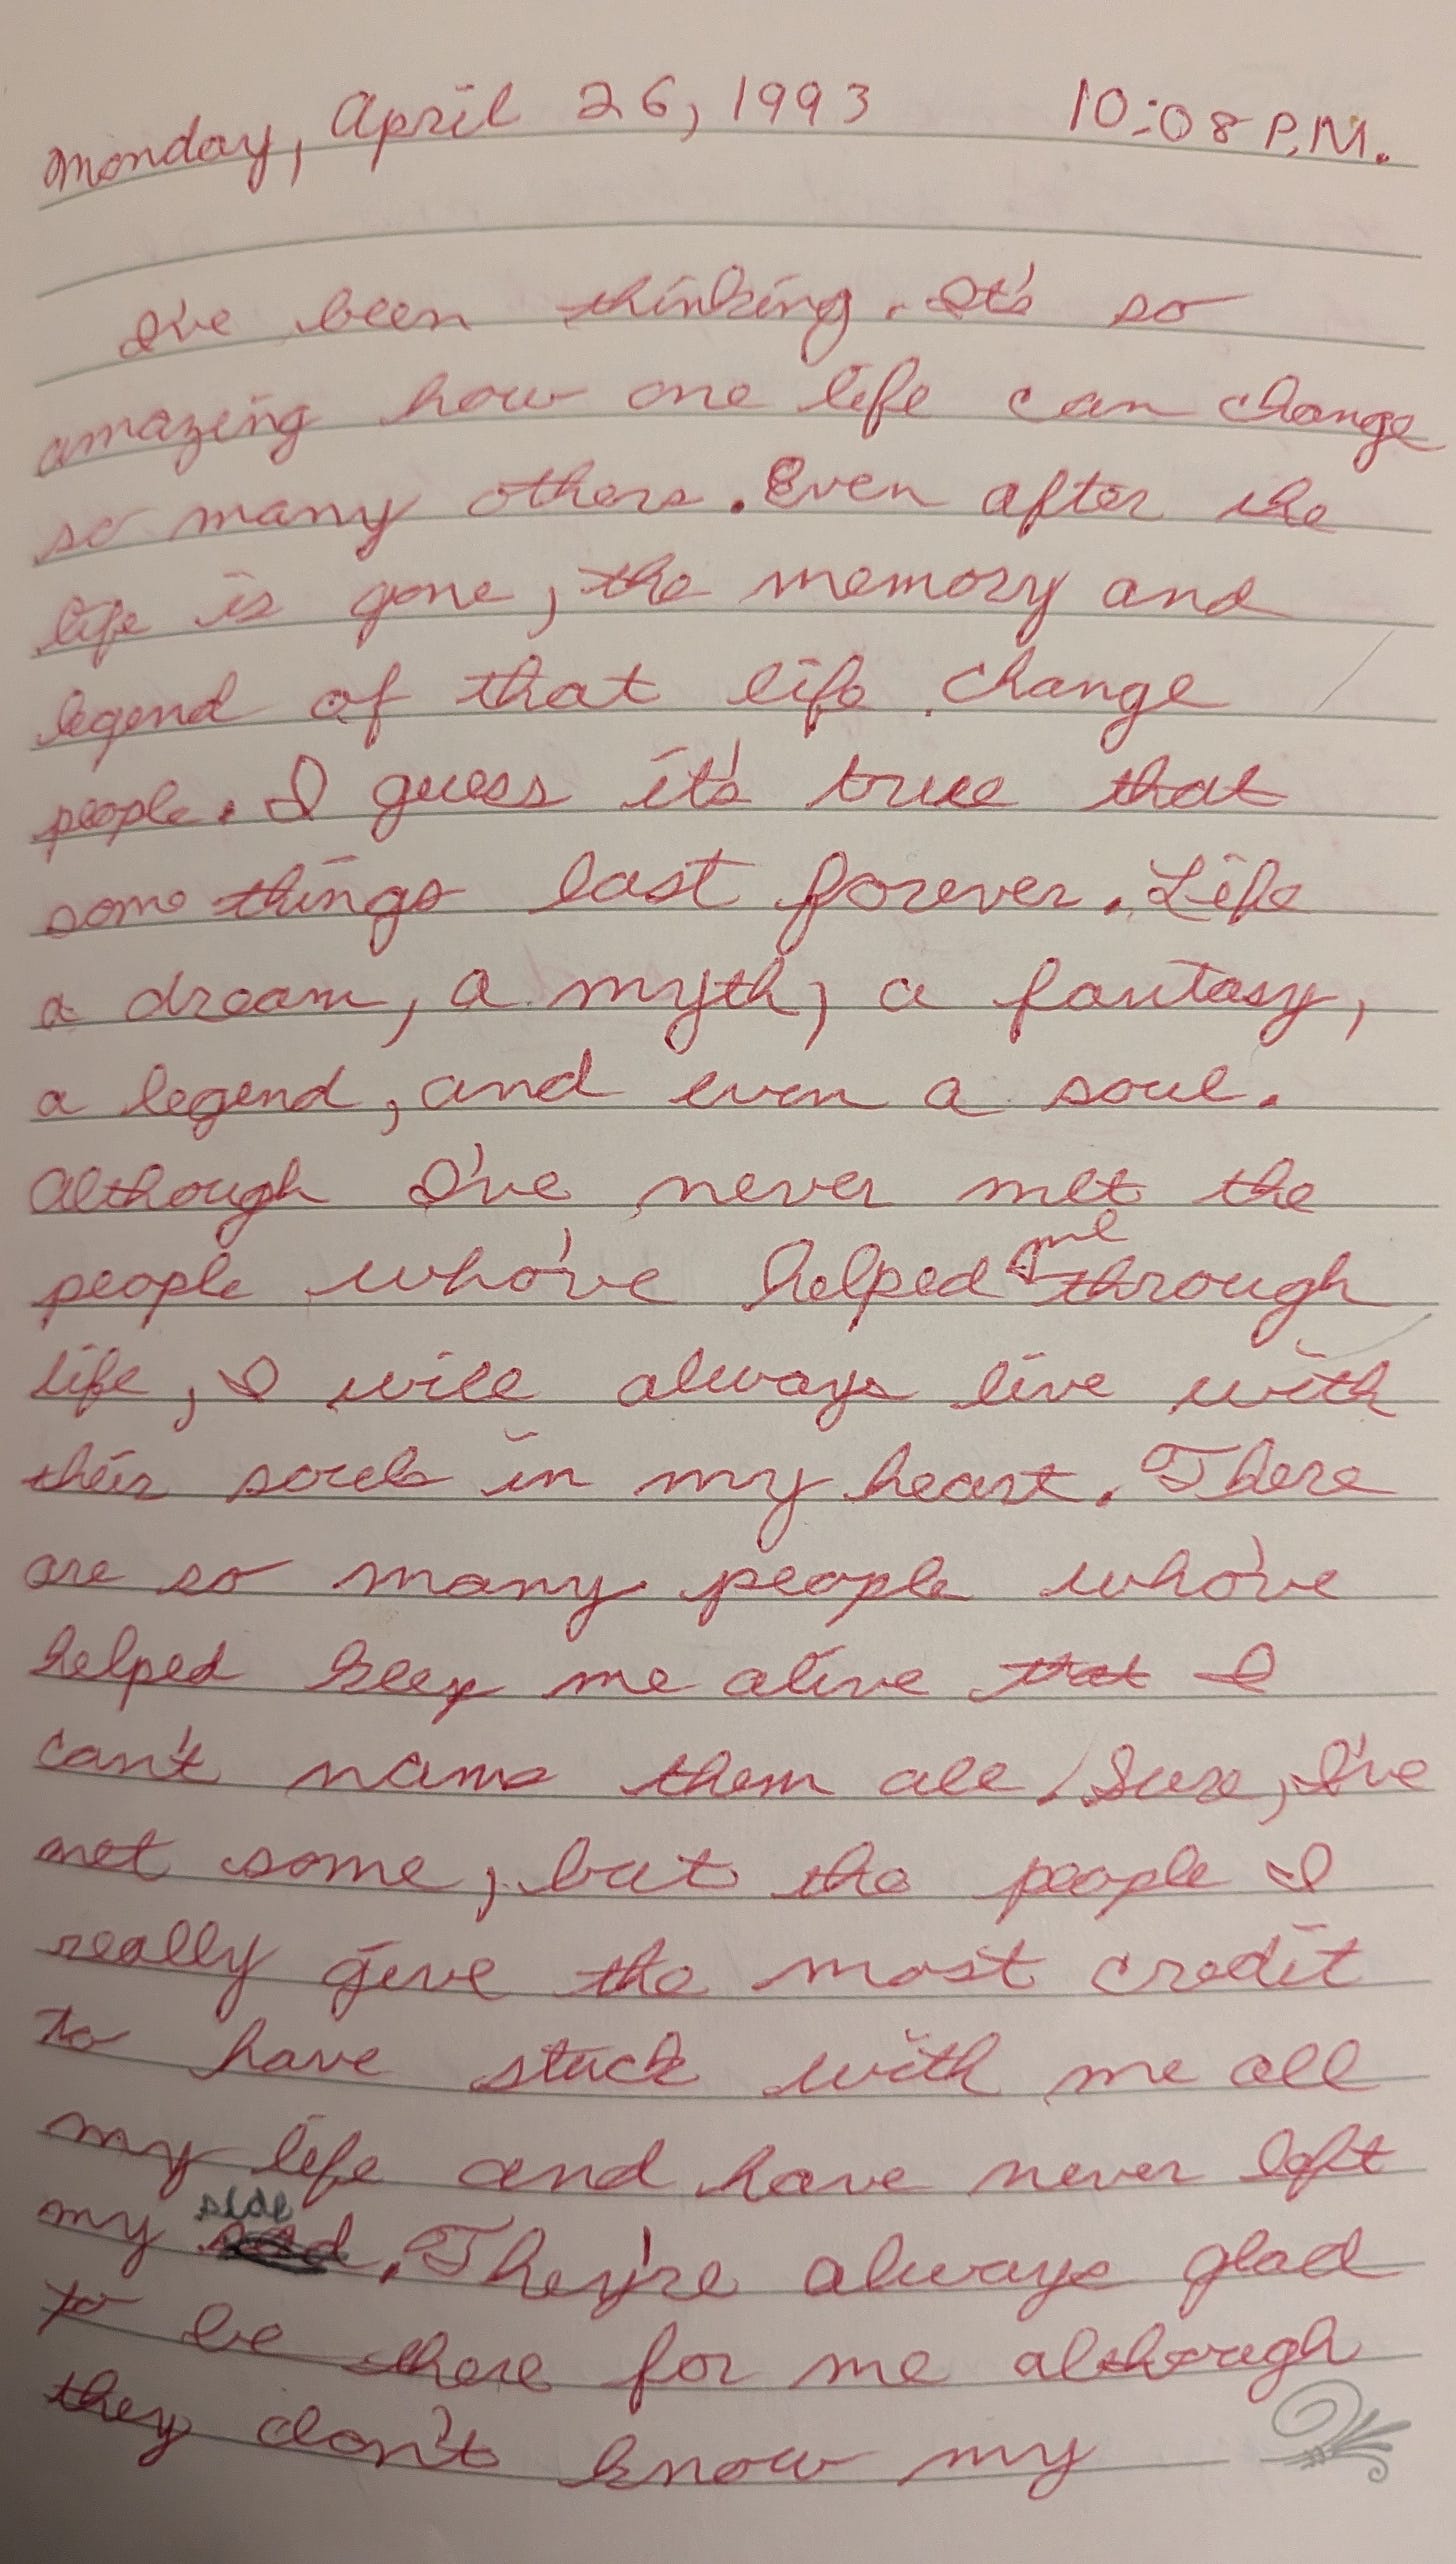 Monday, April 26, 1993 10:08 P.M.
I've been thinking. It's so
amazing how one life can change
so many others. Even after the
life is gone, the memory and
legend of that life change
people. I guess it's true that
some things last forever. Life
a dream, a myth, a fantasy,
a legend, and even a soul.
Although I've never met the
people who've helped me through
life, I will always live with
their souls in my heart. There
are so many people who've
helped keep me alive that I
can't name them all. Sure, I've
met some, but the people I
really give the most credit
to have stuck with me all
my life and have never left
my side. They're always glad
to be there for me although
they don't know my